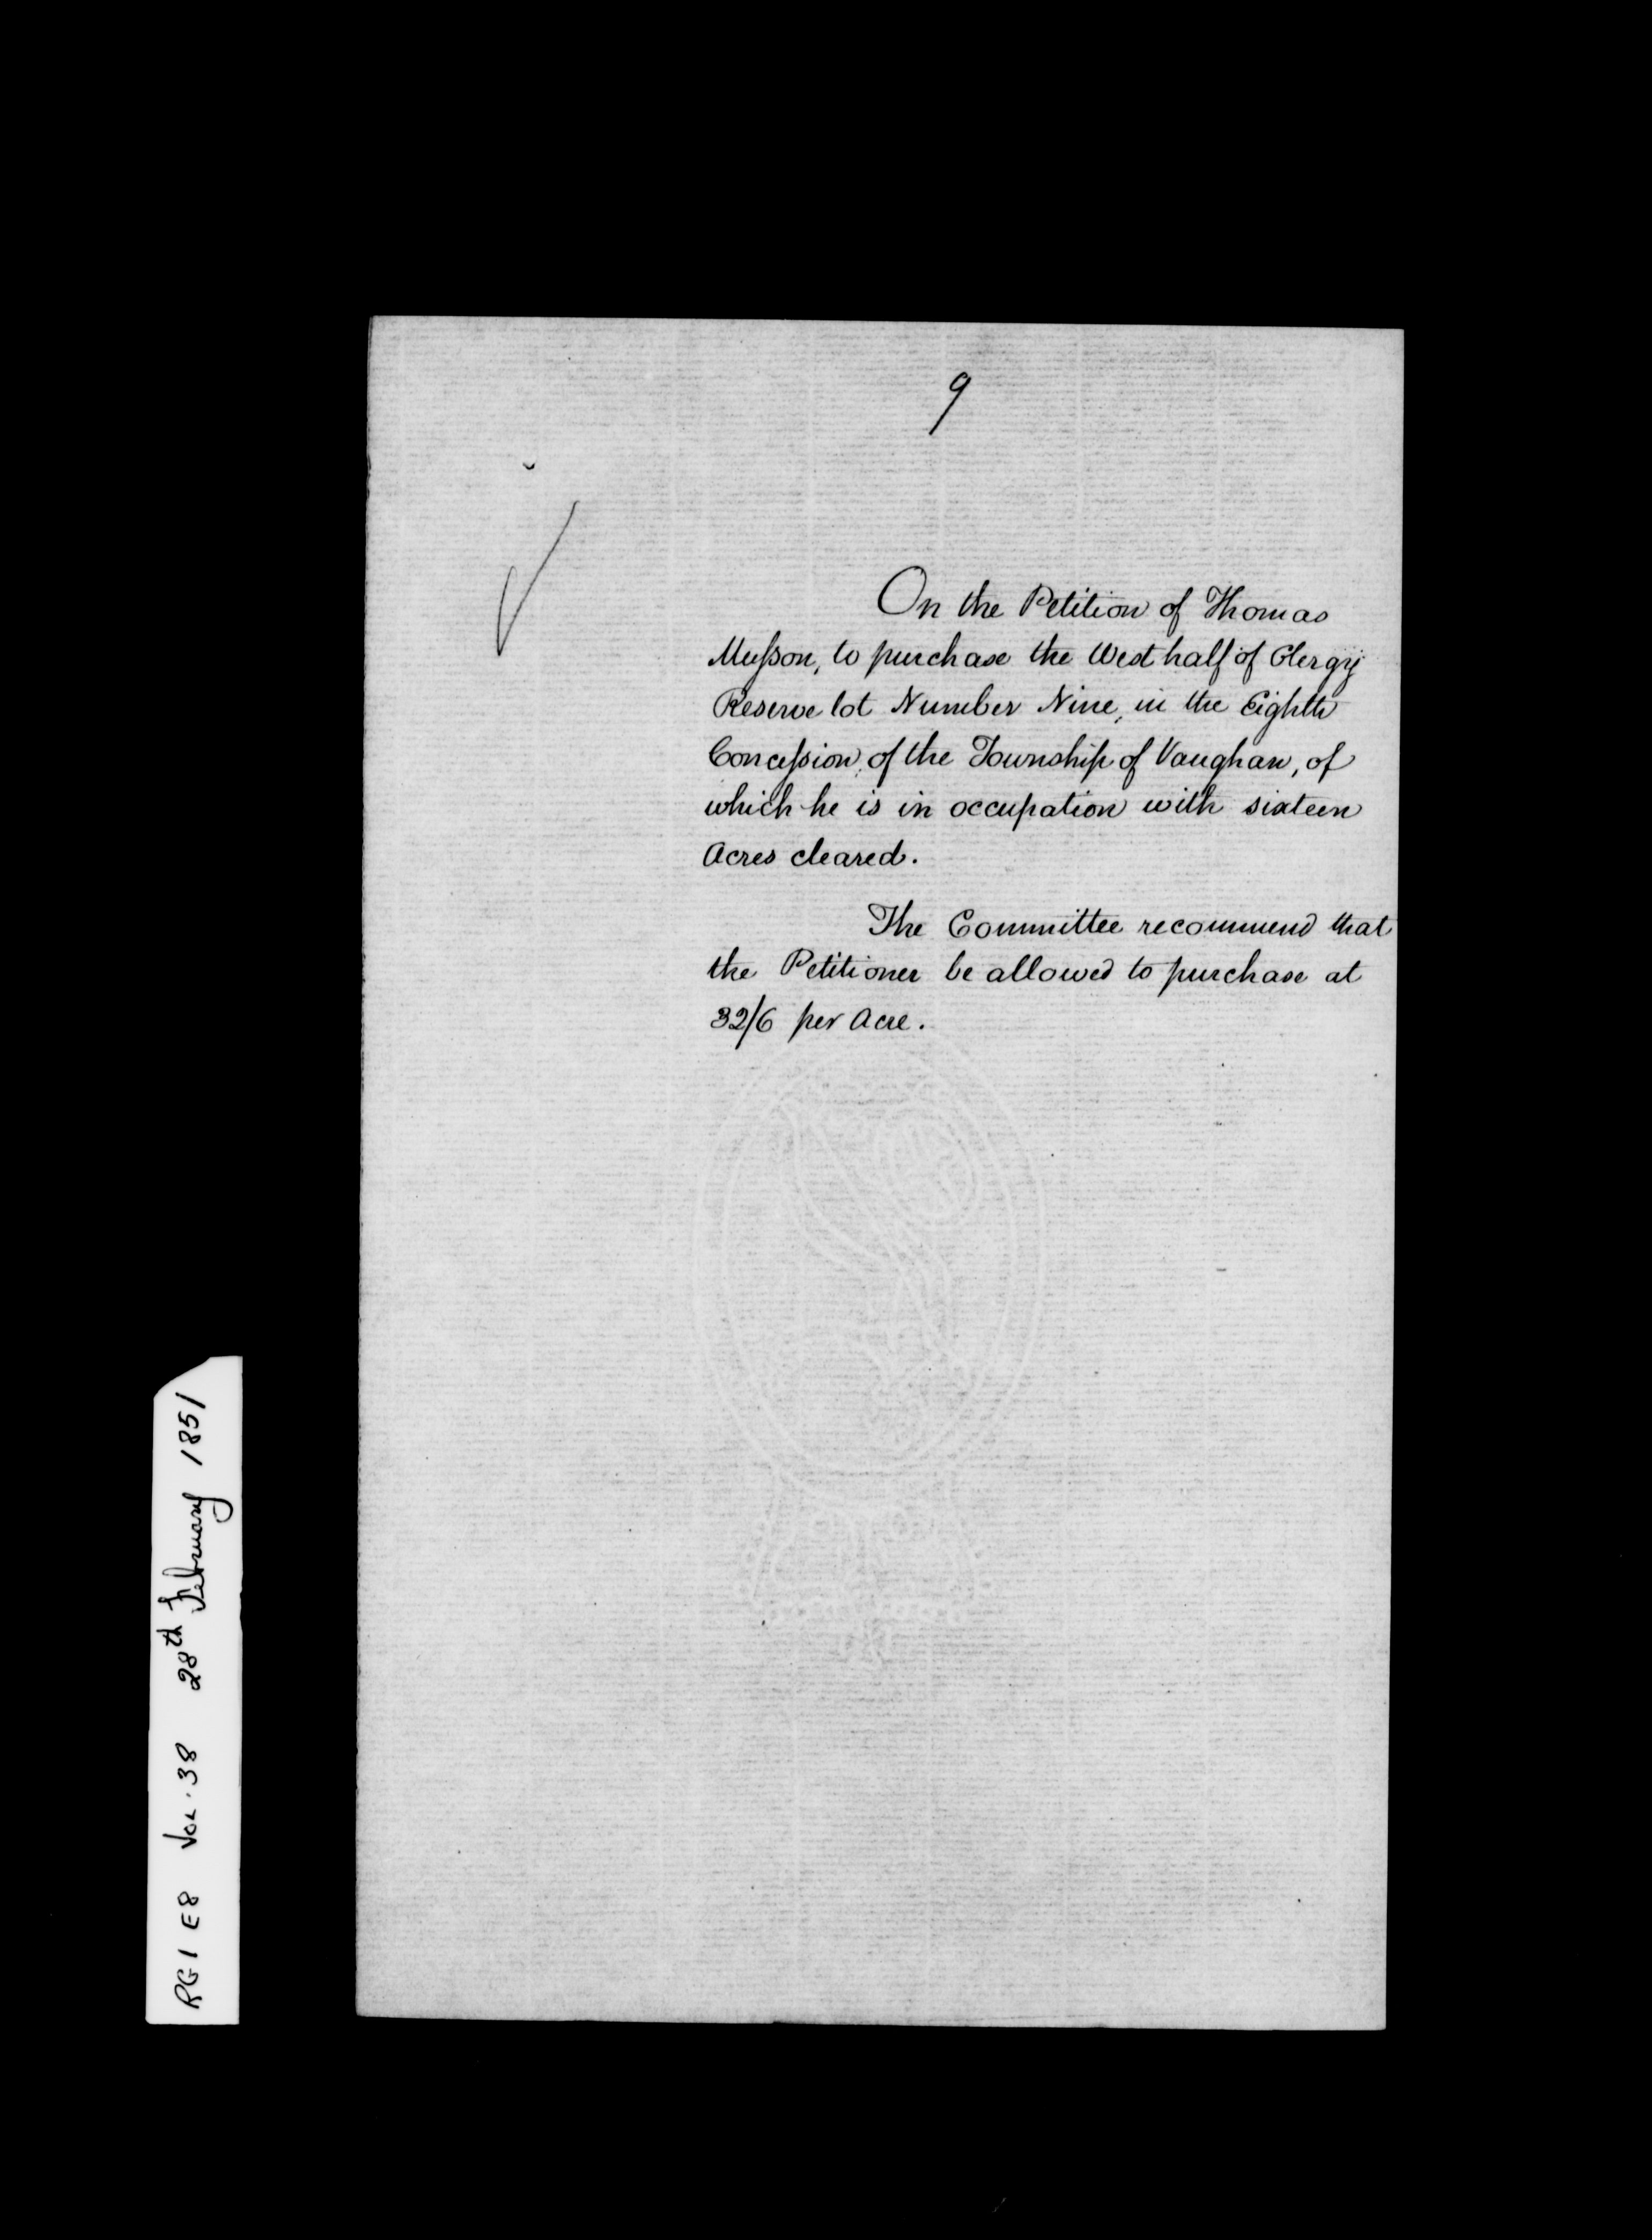 9
On the Petition of Thomas
Muſson, to purchase the West half of Clergy
Reserve lot Number Nine, in the Eighth
Conceſsion, of the Township of Vaughan, of
which he is in occupation with sixteen
Acres cleared.
The Committee recommend that
the Petitioner be allowed to purchase at
32/6 per Acre.
RG1 E8 Vol. 38 28th February 1851